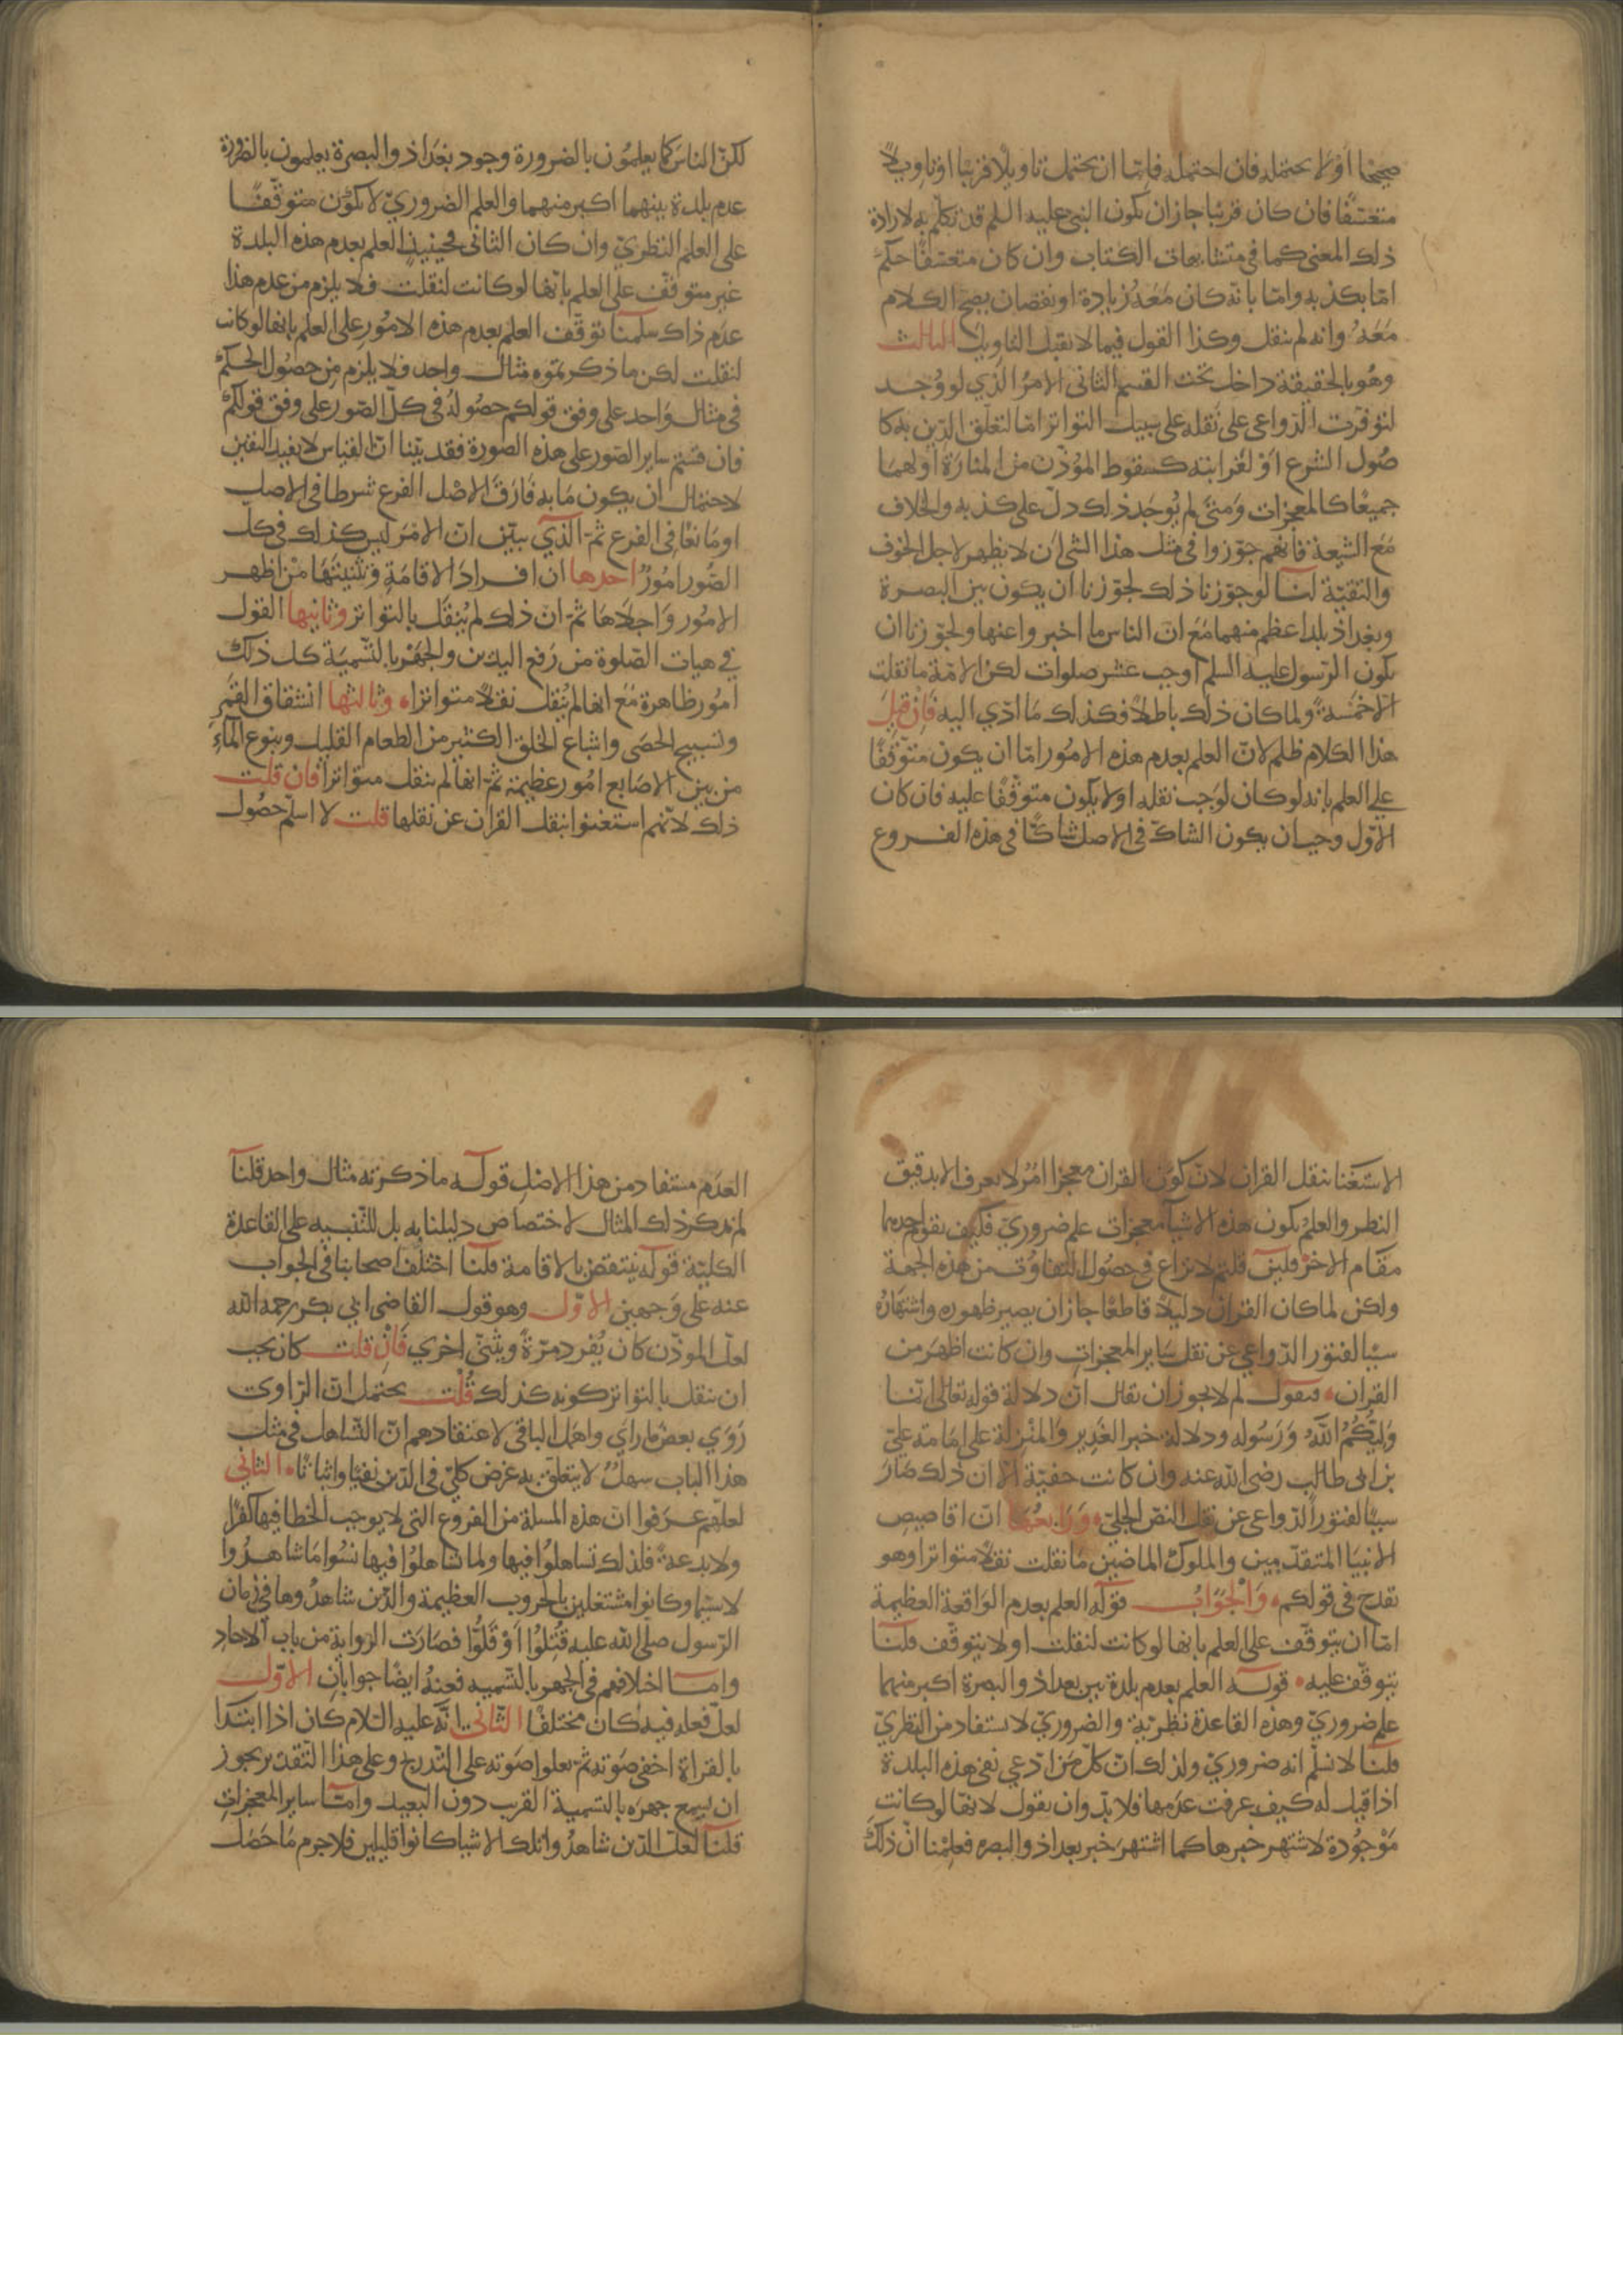 صحيحا او لا يحتمله فان احتمله فاما ان يحتمل تاويلا قريبا او تاويلا
متعسّفا فان كان قريبا جاز ان يكون النبي عليه السلم قد تكلم به لارادة
ذلك المعنى كما في متشابهات الكتاب وان كان متعسفا حكم
امّا بكذبه وامّا بانّه كان مَعَهُ زيادة او نقصان يصح الكلام
مَعَهُ وانه لم ينقل وكذا القول فيما لا يقبل التاويل الثالث
وهُو بالحقيقة داخل تحت القسم الثانى الامرُ الذي لو وُجد
لتوفّرت الدّواعى على نَقله على سبيل التواتر امّا لتعلّق الدّين به كا
صُول الشرع اوْ لغرابته كسقوط المؤذّن من المنارَة او لهمَا
جميعًا كالمعجزات وَمتى لم يُوجَد ذلك دلّ على كذبه والخلاف
مَعَ الشيعة فانهم جوّزوا فى مثل هذا الشى اَن لا يظهر لاجل الخوف
والتقيّة لنا لو جوّزنا ذلك لجوّزنا ان يكون بين البصرة
وبغداذ بلد اعظم منهما مَعَ انّ الناس ما اخبروا عنها ولجوّزنا ان
يكون الرّسول عليه السلم اوجب عشر صلوات لكنّ الامّة ما نقلت
الّا خمسَة ولما كان ذلك باطلًا فكذلك مَا ادّي اليه فَانْ قيلَ
هذا الكلام ظلم لانّ العلم بعدم هذه الامُور امّا ان يكون متوّقفًا
علي العلم بانه لو كان لوَجب نقله او لا يكون متوّقّفًا عليه فان كان
الاوّل وجب ان يكون الشاكّ في الاصل شاكّا في هذه الفروع
لكنّ الناسَ كما يعلمُون بالضرورة وجود بغداذ والبصرة يعلمون بالضرورة
عدم بلدة بينهما اكبر منهما والعلم الضروريّ لا يكوُن متوقّفًا
على العلم النظريّ وان كان الثانى فحينيذ العلم بعدم هذه البلدة
غير متوقّف على العلم بانّها لو كانت لنقلت فلا يلزم من عدم هذا
عدَم ذاك سلّمنا توقّف العلم بعدم هذه الامُور على العلم بانها لو كانت
لنقلت لكن ما ذكرتموه مثال واحد فلا يلزم من حصُول الحكم
فى مثال وَاحد على وفق قولكم حصُولهُ فى كلّ الصّور على وفق قولكم
فان قستم ساير الصّور على هذه الصورة فقد بيّنا انّ القياس لا يفيد اليقين
لاحتمال ان يكون مَا به فَارَقَ الاصْل الفرع شرطا فى الاصل
او مَانعًا فِى الفرع ثمّ الّذي يبيّن انّ الامَر ليسَ كذلك في كلّ
الصُّور امُورٌ احدها ان افرادَ الاقامَةِ وَتثنيتَهَا منْ اظهر
الامُور وَاجلاهَا ثمّ انّ ذلك لم يُنقَل بالتواتر وثانيها القول
في هيات الصّلوة من رَفع اليدين والجهر بالتّسميَة كل ذلك
امُور ظاهرة مَعَ انها لم يُنقل نقلًا متواترا وثالثها انشقاق القمَرِ
وتسبيح الحصَى واشباع الخلق الكثير من الطعام القليل ونبوع المآءِ
من بين الاصَابع امُور عظيمة ثمّ انها لم ينقل متواترا فان قلت
ذلك لانّهم استغنوا بنقل القران عن نقلها قلت لا اسلّم حصُول
الاسْتغنا بنقل القران لانّ كوْن القران معجزا امْرٌ لا يعرف الا بدقيق
النظر والعلمُ بكون هذه الاشيآ معجزات علم ضروريّ فكيف يقوم احدهما
مقَام الاخر فلين قلتم لا نزاع فى حصُول التفاوُت من هذه الجهة
ولكن لما كان القران دليلًا قاطعًا جاز ان يصير ظهوره واشتهارُهُ
سببًا لفتور الدّواعي عن نقل سَاير المعجزات وان كانت اظهَر من
القران فنقول لم لا يجوز ان يقال انّ دلالة قوله تعالى انّما
وَليُّكُمُ اللّهُ وَرَسُوله ودلالة خبر الغَدير وَالمَنْزِلَة على امَامة عليّ
بن ابى طالب رضى الله عنه وان كانت خفيّة الّا ان ذلك صَارَ
سببًا لفتور الدّواعى عن نقل النصّ الجليّ وَرَابعُهَا انّ اقاصيص
الانبيَا المتقدّمين والملوك الماضين مَا نقلت نقلًا متواترا وهو
يقدح فى قولكم وَالْجَوَابُ قوله العلم بعدم الوَاقعة العظيمة
امّا ان يتوقّف على العلم بانها لو كانت لنقلت او لا يتوقّف قلنا
يتوقّف عليه قوله العلم بعدم بلدة بين بغداذ والبصرة اكبر منهما
علم ضروريّ وهذه القاعدَة نظريّة والضروريّ لا يستفاد من النظريّ
قلنا لا نسلّم انه ضروريّ ولذلك انّ كلّ مَن ادّعي نفى هذه البلدة
اذا قيل له كيف عرفت عدَمها فلا بدّ وان يقول لانّها لو كانت
مَوْجُودة لاشتهر خبرها كما اشتهرَ خبر بغداذ والبصره فعلِمْنا انّ ذلكَ
العدَم مستفاد من هذا الاصْلِ قوله ما ذكرته مثال واحد قلنا
لم نذكر ذلك المثال لاختصاص دليلنا به بل للتّنبيه على القاعدة
الكليّة قوله ينتقض بالاقامة قلنا اختلَف اصحابنا فى الجواب
عنه على وَجهين الاوّل وهو قول القاضى ابي بكر رحمه الله
لعلّ الموذّن كان يُفرد مرّةً ويثنّى اخري فَانْ قلت كان يجب
ان ينقل بالتواتر كونه كذلك قُلْت يحتمل انّ الرّاوي
رَوَي بعض ما راي واهمَل الباقى لاعتقادهم انّ التّساهل فى مثل
هذا الباب سهلٌ لا يتعلّق به غرض كليّ فى الدّين نفيًا واثباتًا الثاني
لعلّهم عرَفوا انّ هذه المسلة من الفروع التى لا يوجب الخطا فيها كفرًا
ولا بدعة فلذلك تساهلُوا فيها ولما تساهلُوا فيها نسُوا مَا شاهدُوا
لا سيّما وكانوا مشتغلين بالحروب العظيمة والذين شاهدُوها فى زمان
الرّسول صلى الله عليه قُتِلُوا اَوْ قَلُّوا فصَارَت الرّواية من باب الآحادِ
وامّا اختلافهم فى الجهر بالتّسميه فعنهُ ايضًا جوابان الاوّل
لعلّ فعله فيه كان مختلفًا الثّانى انّهُ عليه السّلام كان اذا ابتدَا
بالقراة اخفى صَوته ثمّ يعلوا صَوته على التّدريج وعلى هذا التّقدير يجوز
ان يسمع جهرَه بالتسمية القريب دون البعيد وامّا ساير المعجزاتِ
قلنا لعلّ الذين شاهدُوا تلك الاشيا كانوا قليلين فلا جرم مَا حَصَل